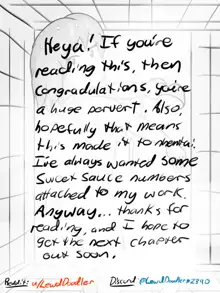 Heya! If you're
reading this, then
congradulations, you're
a huge pervert. Also,
hopefully that means
this made it to nhentai.
I've always wanted some
sweet sauce numbers
attached to my work.
Anyway... thanks for
reading, and I hope to
get the next chapter
out soon.
Reddit: u/LewdDoodler Discord: @LewdDoodler#2390